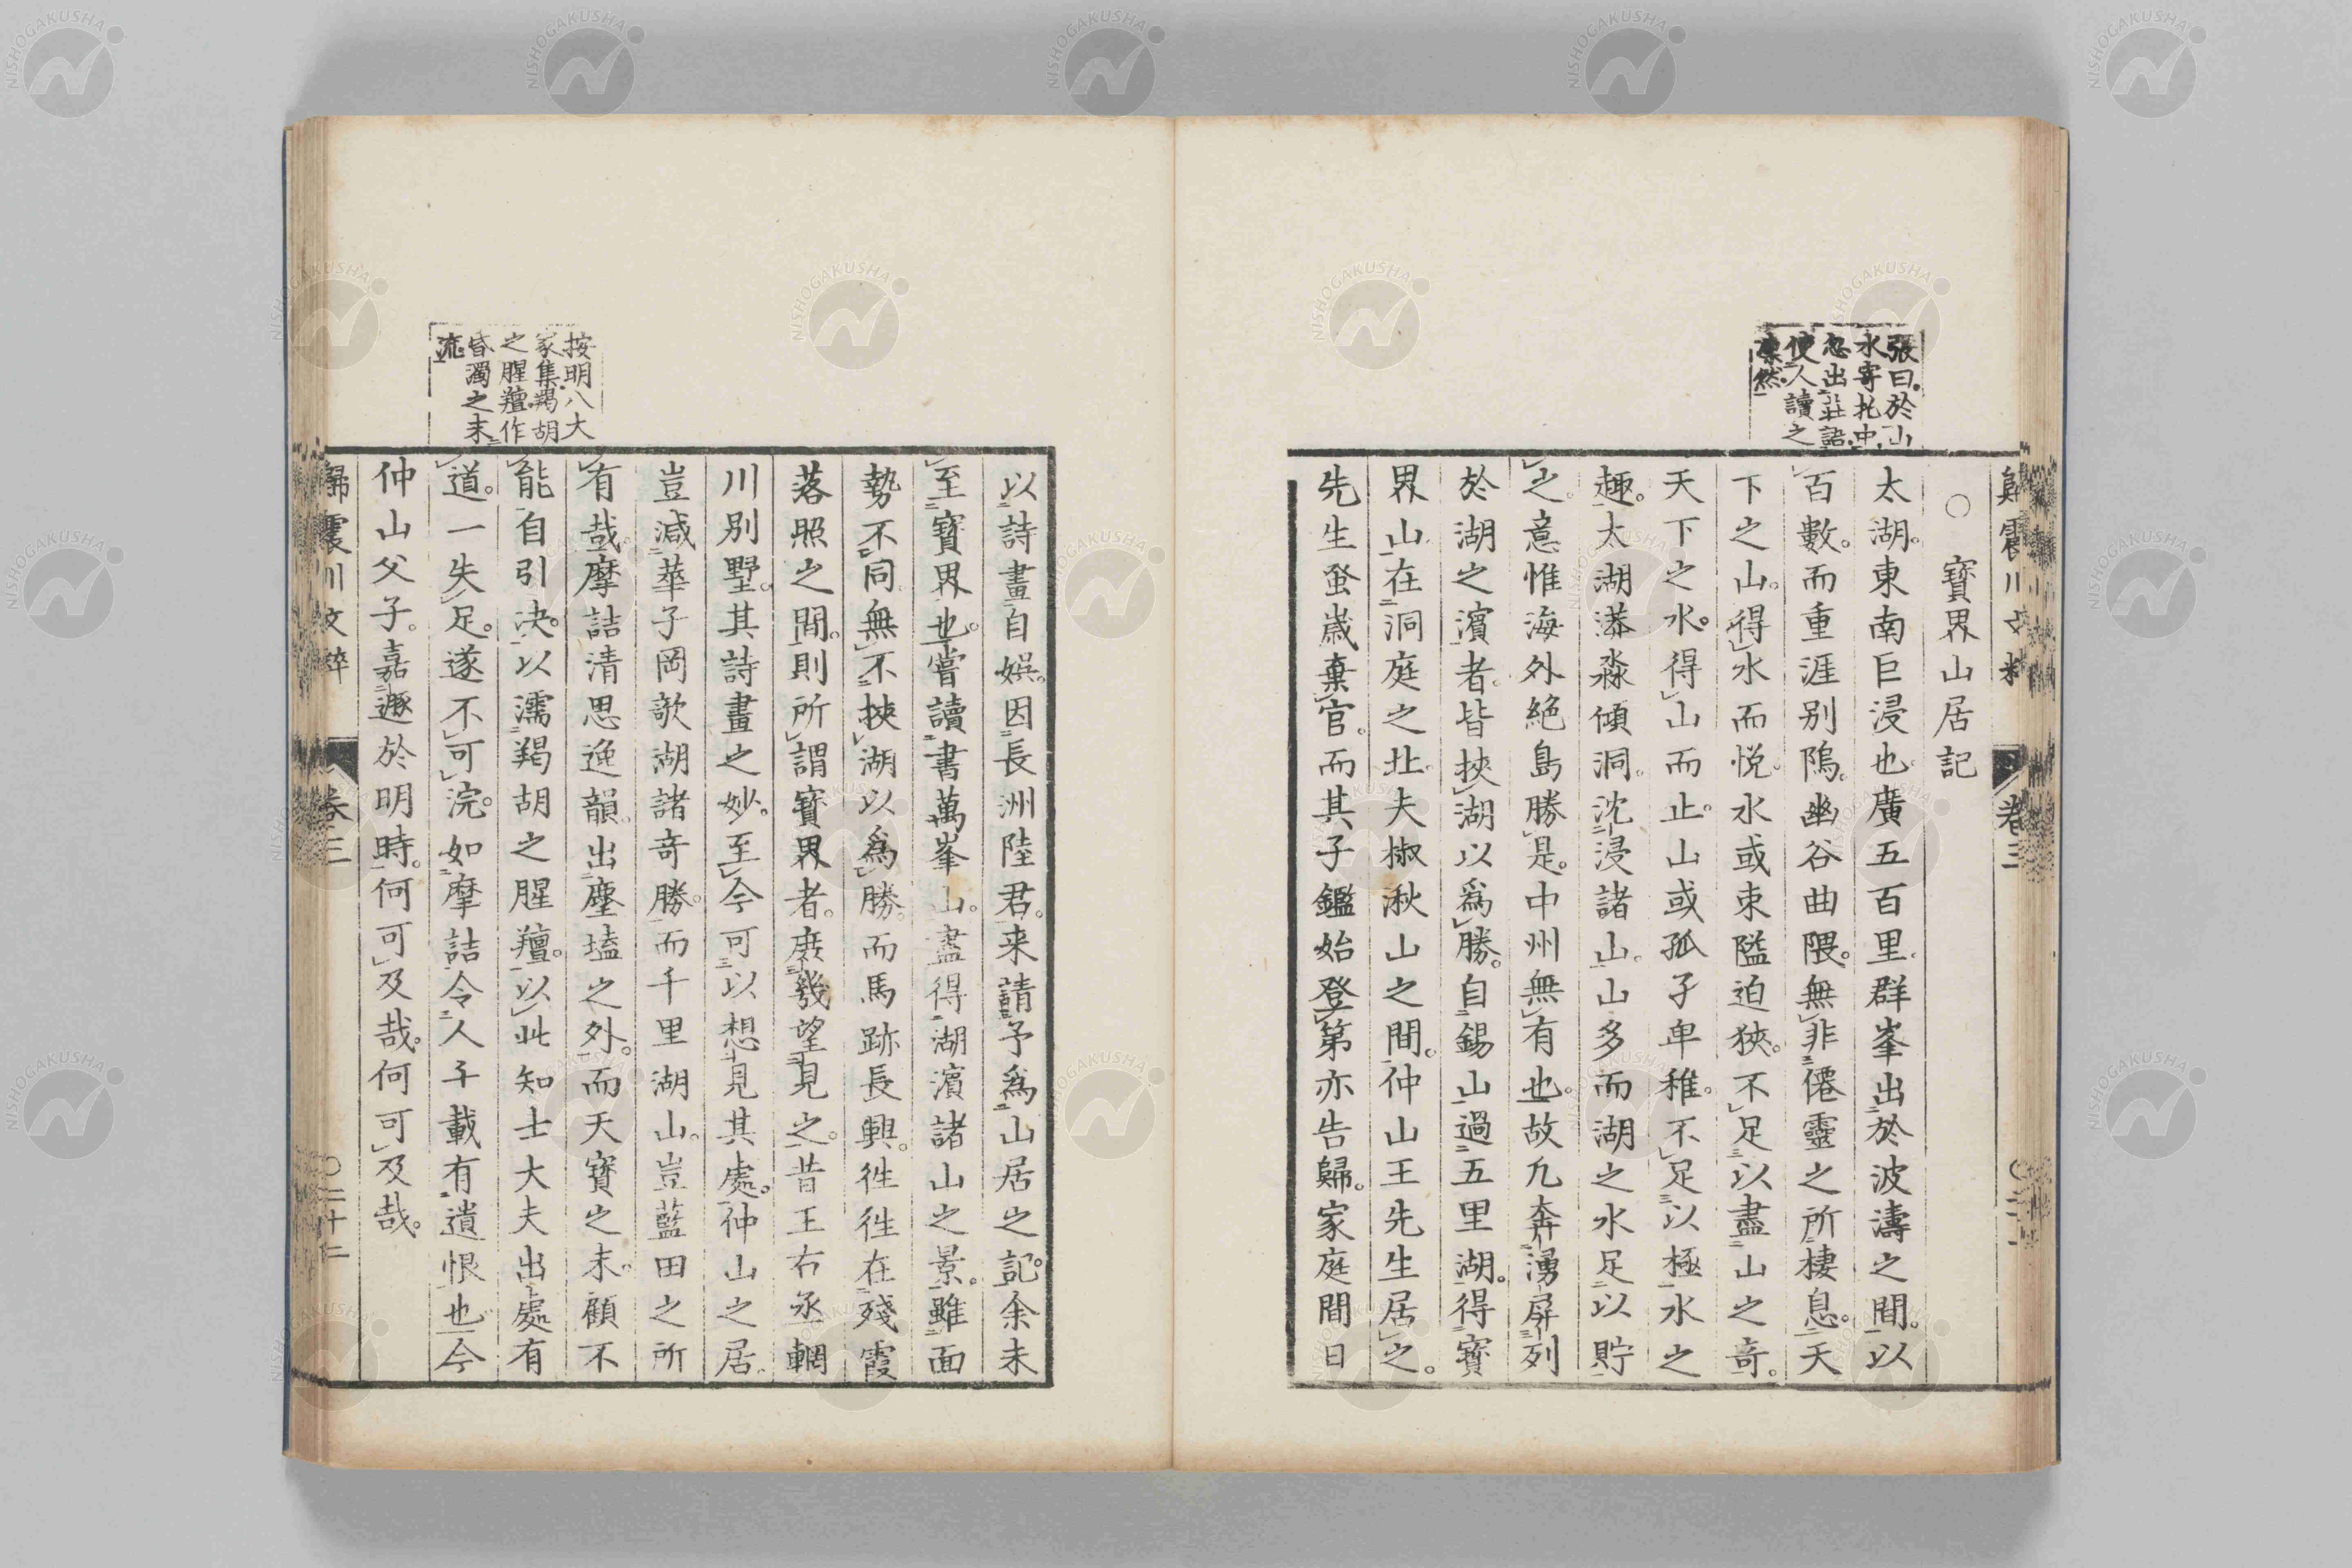 張曰於山
水寄托中
忽出莊語
使人讀之
凜然
○寶界山居記
太湖東南巨浸也廣五百里群峯出於波濤之間以
百數而重涯別隖幽谷曲隈無非僊靈之所棲息天
下之山得水而悅水或束隘迫狹不足以盡山之奇
天下之水得山而止山或孤孑卑稚不足以極水之
趣太湖漭淼傾洞沈浸諸山山多而湖之水足以貯
之意惟海外絕島勝是中州無有也故凢奔湧屏列
於湖之濱者皆挾湖以爲勝自錫山過五里湖得寶
界山在洞庭之北夫椒湫山之間仲山王先生居之
先生蚤歲棄官而其子鑑始登第亦告歸家庭間日
以詩畫自娯因長洲陸君来請予爲山居之記余未
至寶界也嘗讀書萬峯山盡得湖濱諸山之景雖面
勢不同無不挾湖以爲勝而馬跡長興徃徃在殘霞
落照之間則所謂寶界者庻幾望見之昔王右丞輞
川別墅其詩畫之妙至今可以想見其處仲山之居
豈減華子岡欹湖諸奇勝而千里湖山豈藍田之所
有哉摩詰清思逸韻出塵壒之外而天寶之末顧不
能自引决以濡羯胡之腥羶以此知士大夫出處有
道一失足遂不可浣如摩詰令人千載有遺恨也今
仲山父子嘉遯於明時何可及哉何可及哉
按明八大
家集羯胡
之腥羶作
昏濁之末
流
歸震川文粹 卷三 ○二十二